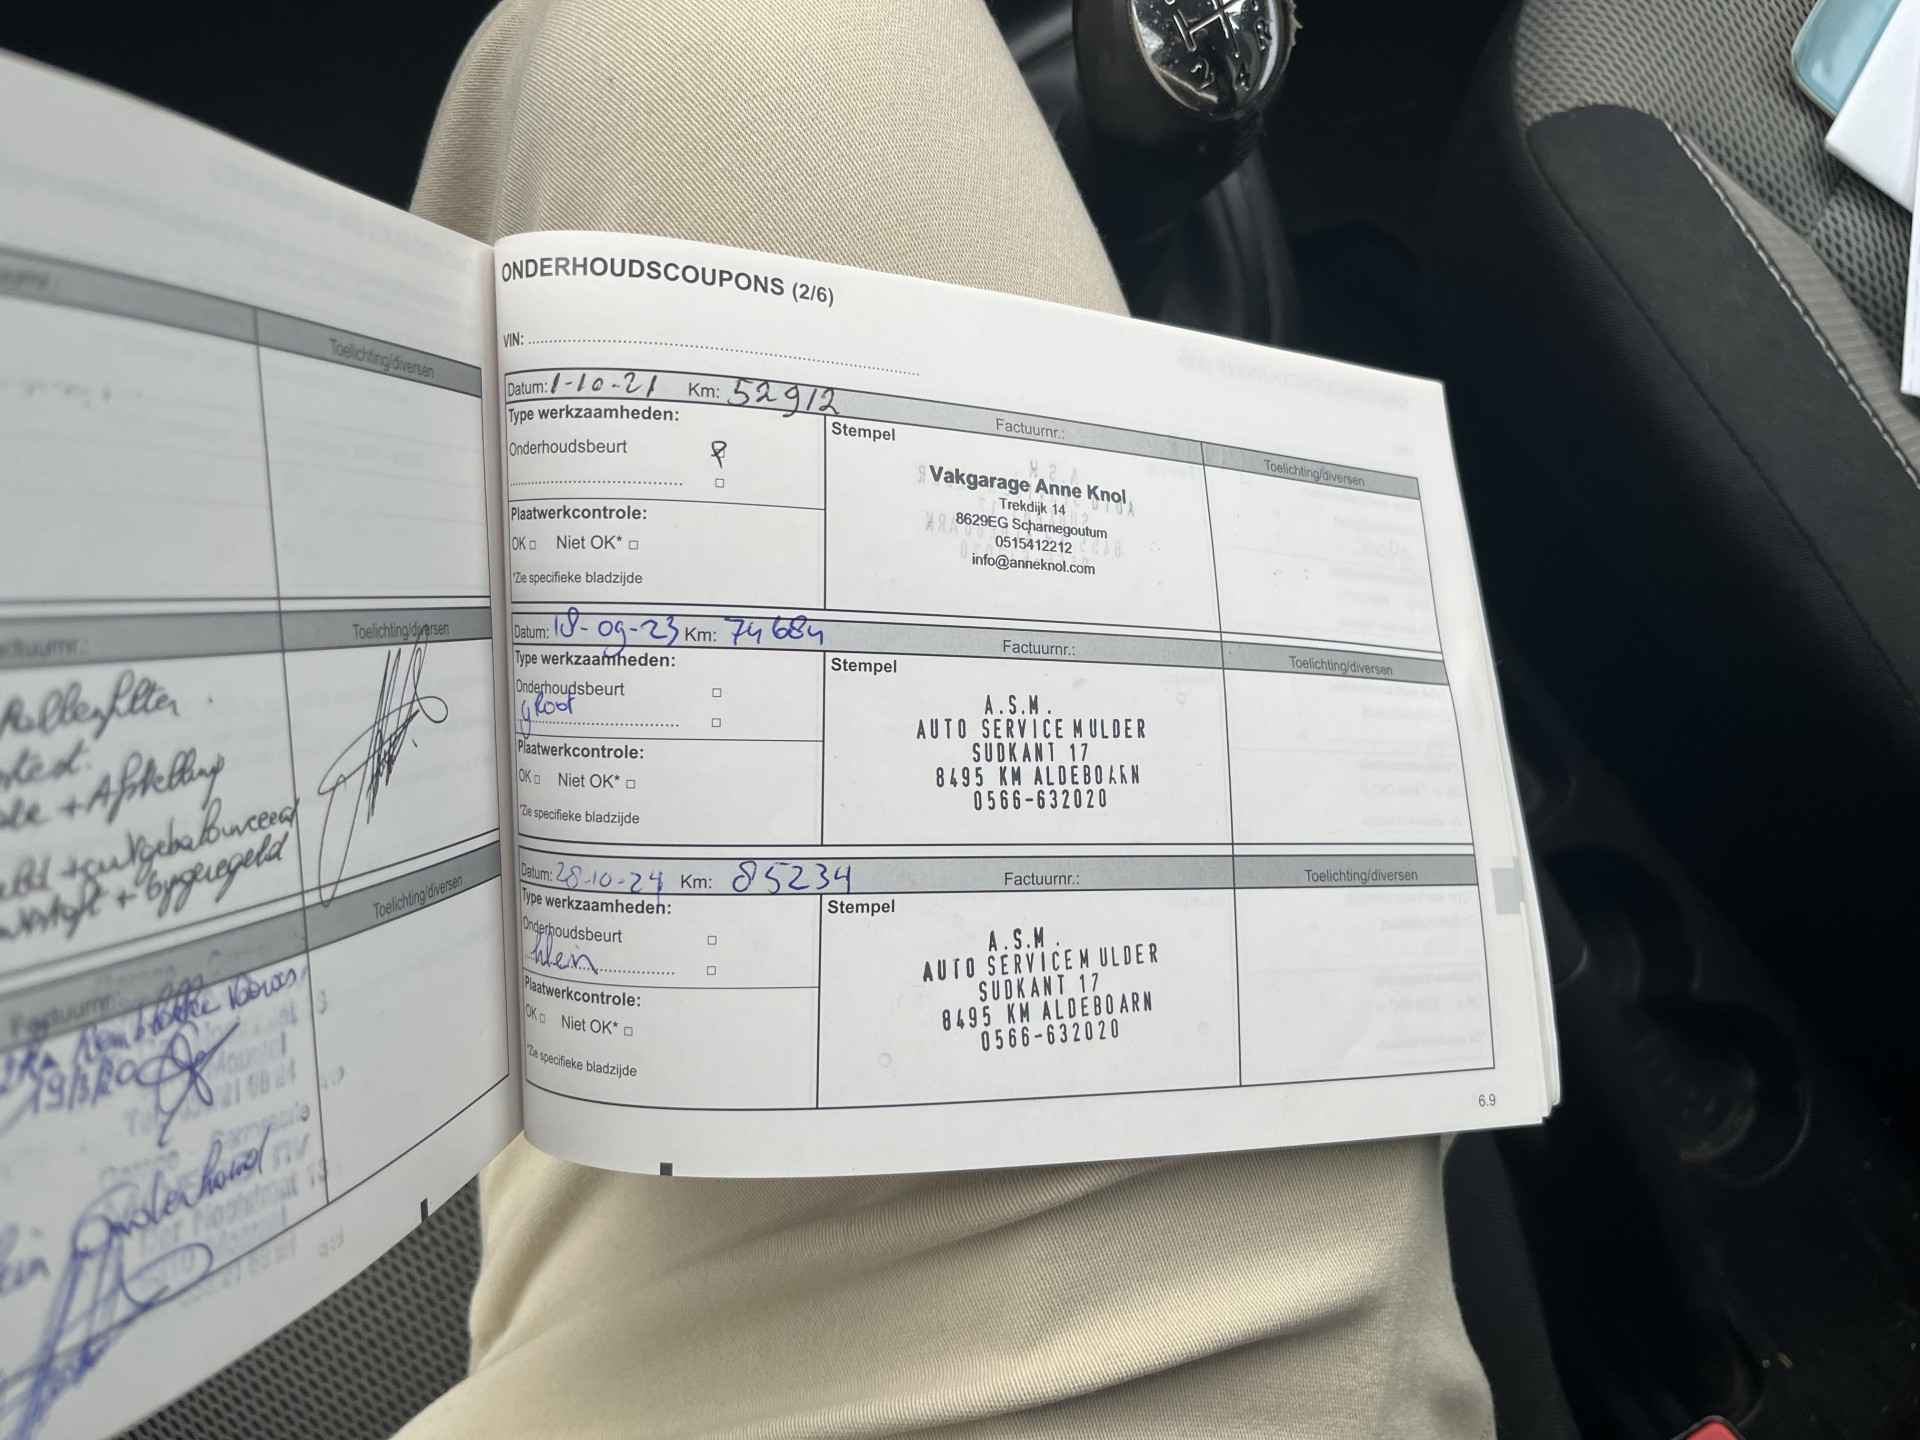 Toelichting/diversen
Toelichting/diversen
+ Afstelling
+ bygeregeld
Toelichting/diversen
Factuurnr.:
19/3/20
Onderhoud
ONDERHOUDSCOUPONS (2/6)
VIN:
Datum: 1-10-21 Km: 52912 Factuurnr.: Toelichting/diversen
Type werkzaamheden:
Stempel
Onderhoudsbeurt
Vakgarage Anne Knol
Trekdijk 14
8629EG Scharnegoutum
0515412212
info@anneknol.com
Plaatwerkcontrole:
OK □ Niet OK* □
*Zie specifieke bladzijde
Datum: 18-09-23 Km: 74684 Factuurnr.: Toelichting/diversen
Type werkzaamheden:
Stempel
Onderhoudsbeurt □
groot □
A.S.M.
AUTO SERVICE MULDER
SUDKANT 17
8495 KM ALDEBOARN
0566-632020
Plaatwerkcontrole:
OK □ Niet OK* □
*Zie specifieke bladzijde
Datum: 28-10-24 Km: 85234 Factuurnr.: Toelichting/diversen
Type werkzaamheden:
Stempel
Onderhoudsbeurt □
klein □
A.S.M.
AUTO SERVICEM ULDER
SUDKANT 17
8495 KM ALDEBOARN
0566-632020
Plaatwerkcontrole:
OK □ Niet OK* □
*Zie specifieke bladzijde
6.9